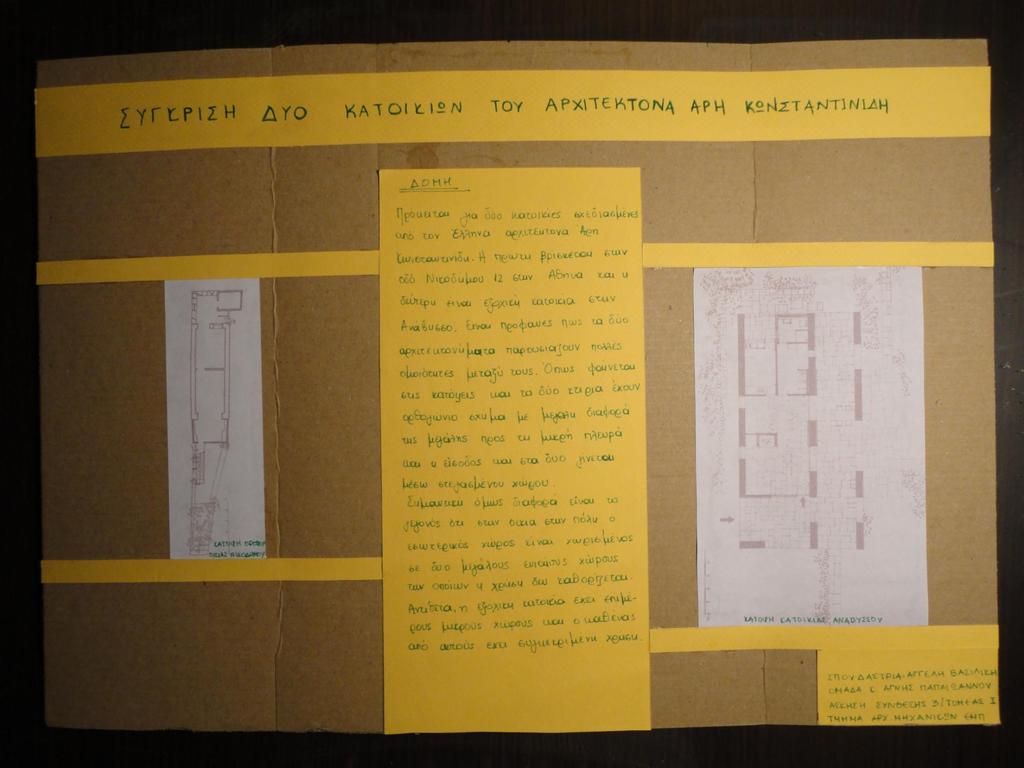 ΣΥΓΚΡΙΣΗ ΔΥΟ ΚΑΤΟΙΚΙΩΝ ΤΟΥ ΑΡΧΙΤΕΚΤΟΝΑ ΑΡΗ ΚΩΝΣΤΑΝΤΙΝΙΔΗ
ΔΟΜΗ
Πρόκειται για δύο κατοικίες σχεδιασμένες
από τον Έλληνα αρχιτέκτονα Άρη
Κωνσταντινίδη. Η πρώτη βρίσκεται στην
οδό Νικοδήμου 12 στην Αθήνα και η
δεύτερη είναι εξοχική κατοικία στην
Ανάβυσσο. Είναι προφανές πως τα δύο
αρχιτεκτονήματα παρουσιάζουν πολλές
ομοιότητες μεταξύ τους. Όπως φαίνεται
στις κατόψεις και τα δύο κτίρια έχουν
ορθογώνιο σχήμα με μεγάλη διαφορά
της μεγάλης προς τη μικρή πλευρά
και η είσοδος και στα δύο γίνεται
μέσω στεγασμένου χώρου.
Σημαντική όμως διαφορά είναι το
γεγονός ότι στην οικία στην πόλη ο
εσωτερικός χώρος είναι χωρισμένος
σε δύο μεγάλους ενιαίους χώρους
των οποίων η χρήση δεν καθορίζεται.
Αντίθετα, η εξοχική κατοικία έχει επιμέ-
ρους μικρούς χώρους και ο καθένας
από αυτούς έχει συγκεκριμένη χρήση.
ΚΑΤΟΨΗ
ΚΑΤΟΨΗ ΚΑΤΟΙΚΙΑΣ ΑΝΑΒΥΣΣΟΥ
ΣΠΟΥΔΑΣΤΡΙΑ: ΑΓΓΕΛΗ ΒΑΣΙΛΙΚΗ
ΟΜΑΔΑ Κ. ΑΓΝΗΣ ΠΑΠΑΙΩΑΝΝΟΥ
ΑΣΚΗΣΗ ΣΥΝΘΕΣΗΣ 3/ΤΟΜΕΑΣ Ι
ΤΜΗΜΑ ΑΡΧ. ΜΗΧΑΝΙΚΩΝ ΕΜΠ